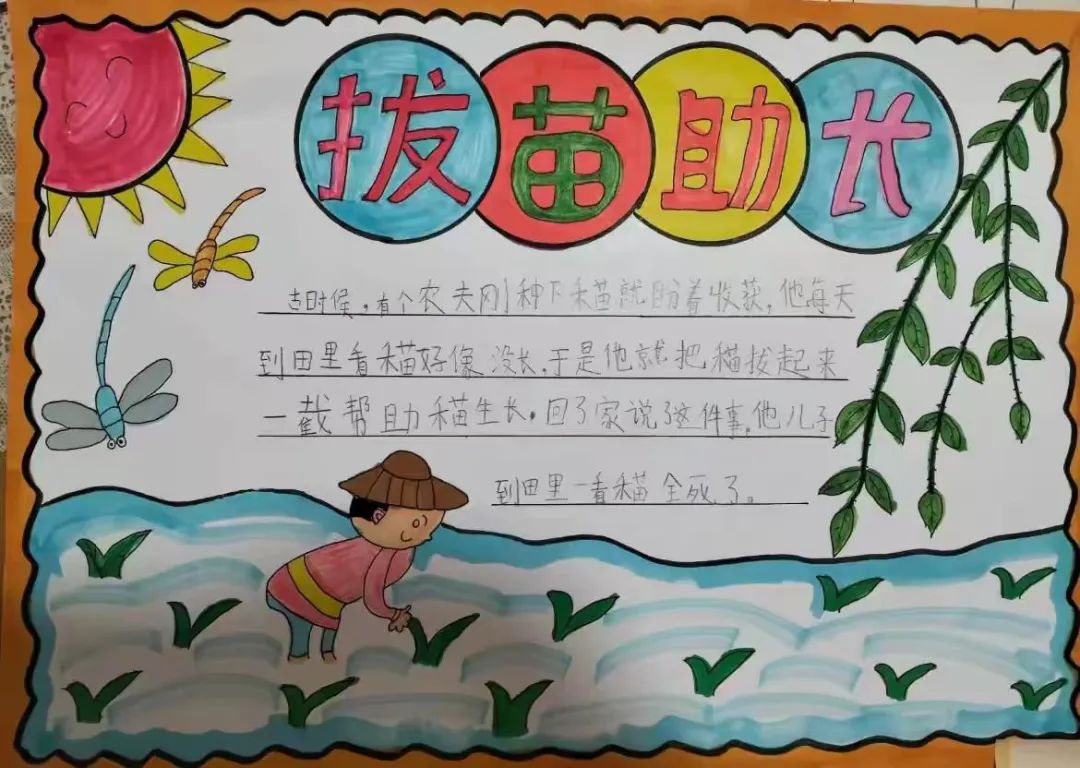 拔苗助长
古时候，有个农夫刚种下禾苗就盼着收获，他每天
到田里看禾苗好像没长，于是他就把禾苗拔起来
一截帮助禾苗生长。回了家说了这件事，他儿子
到田里一看禾苗全死了。